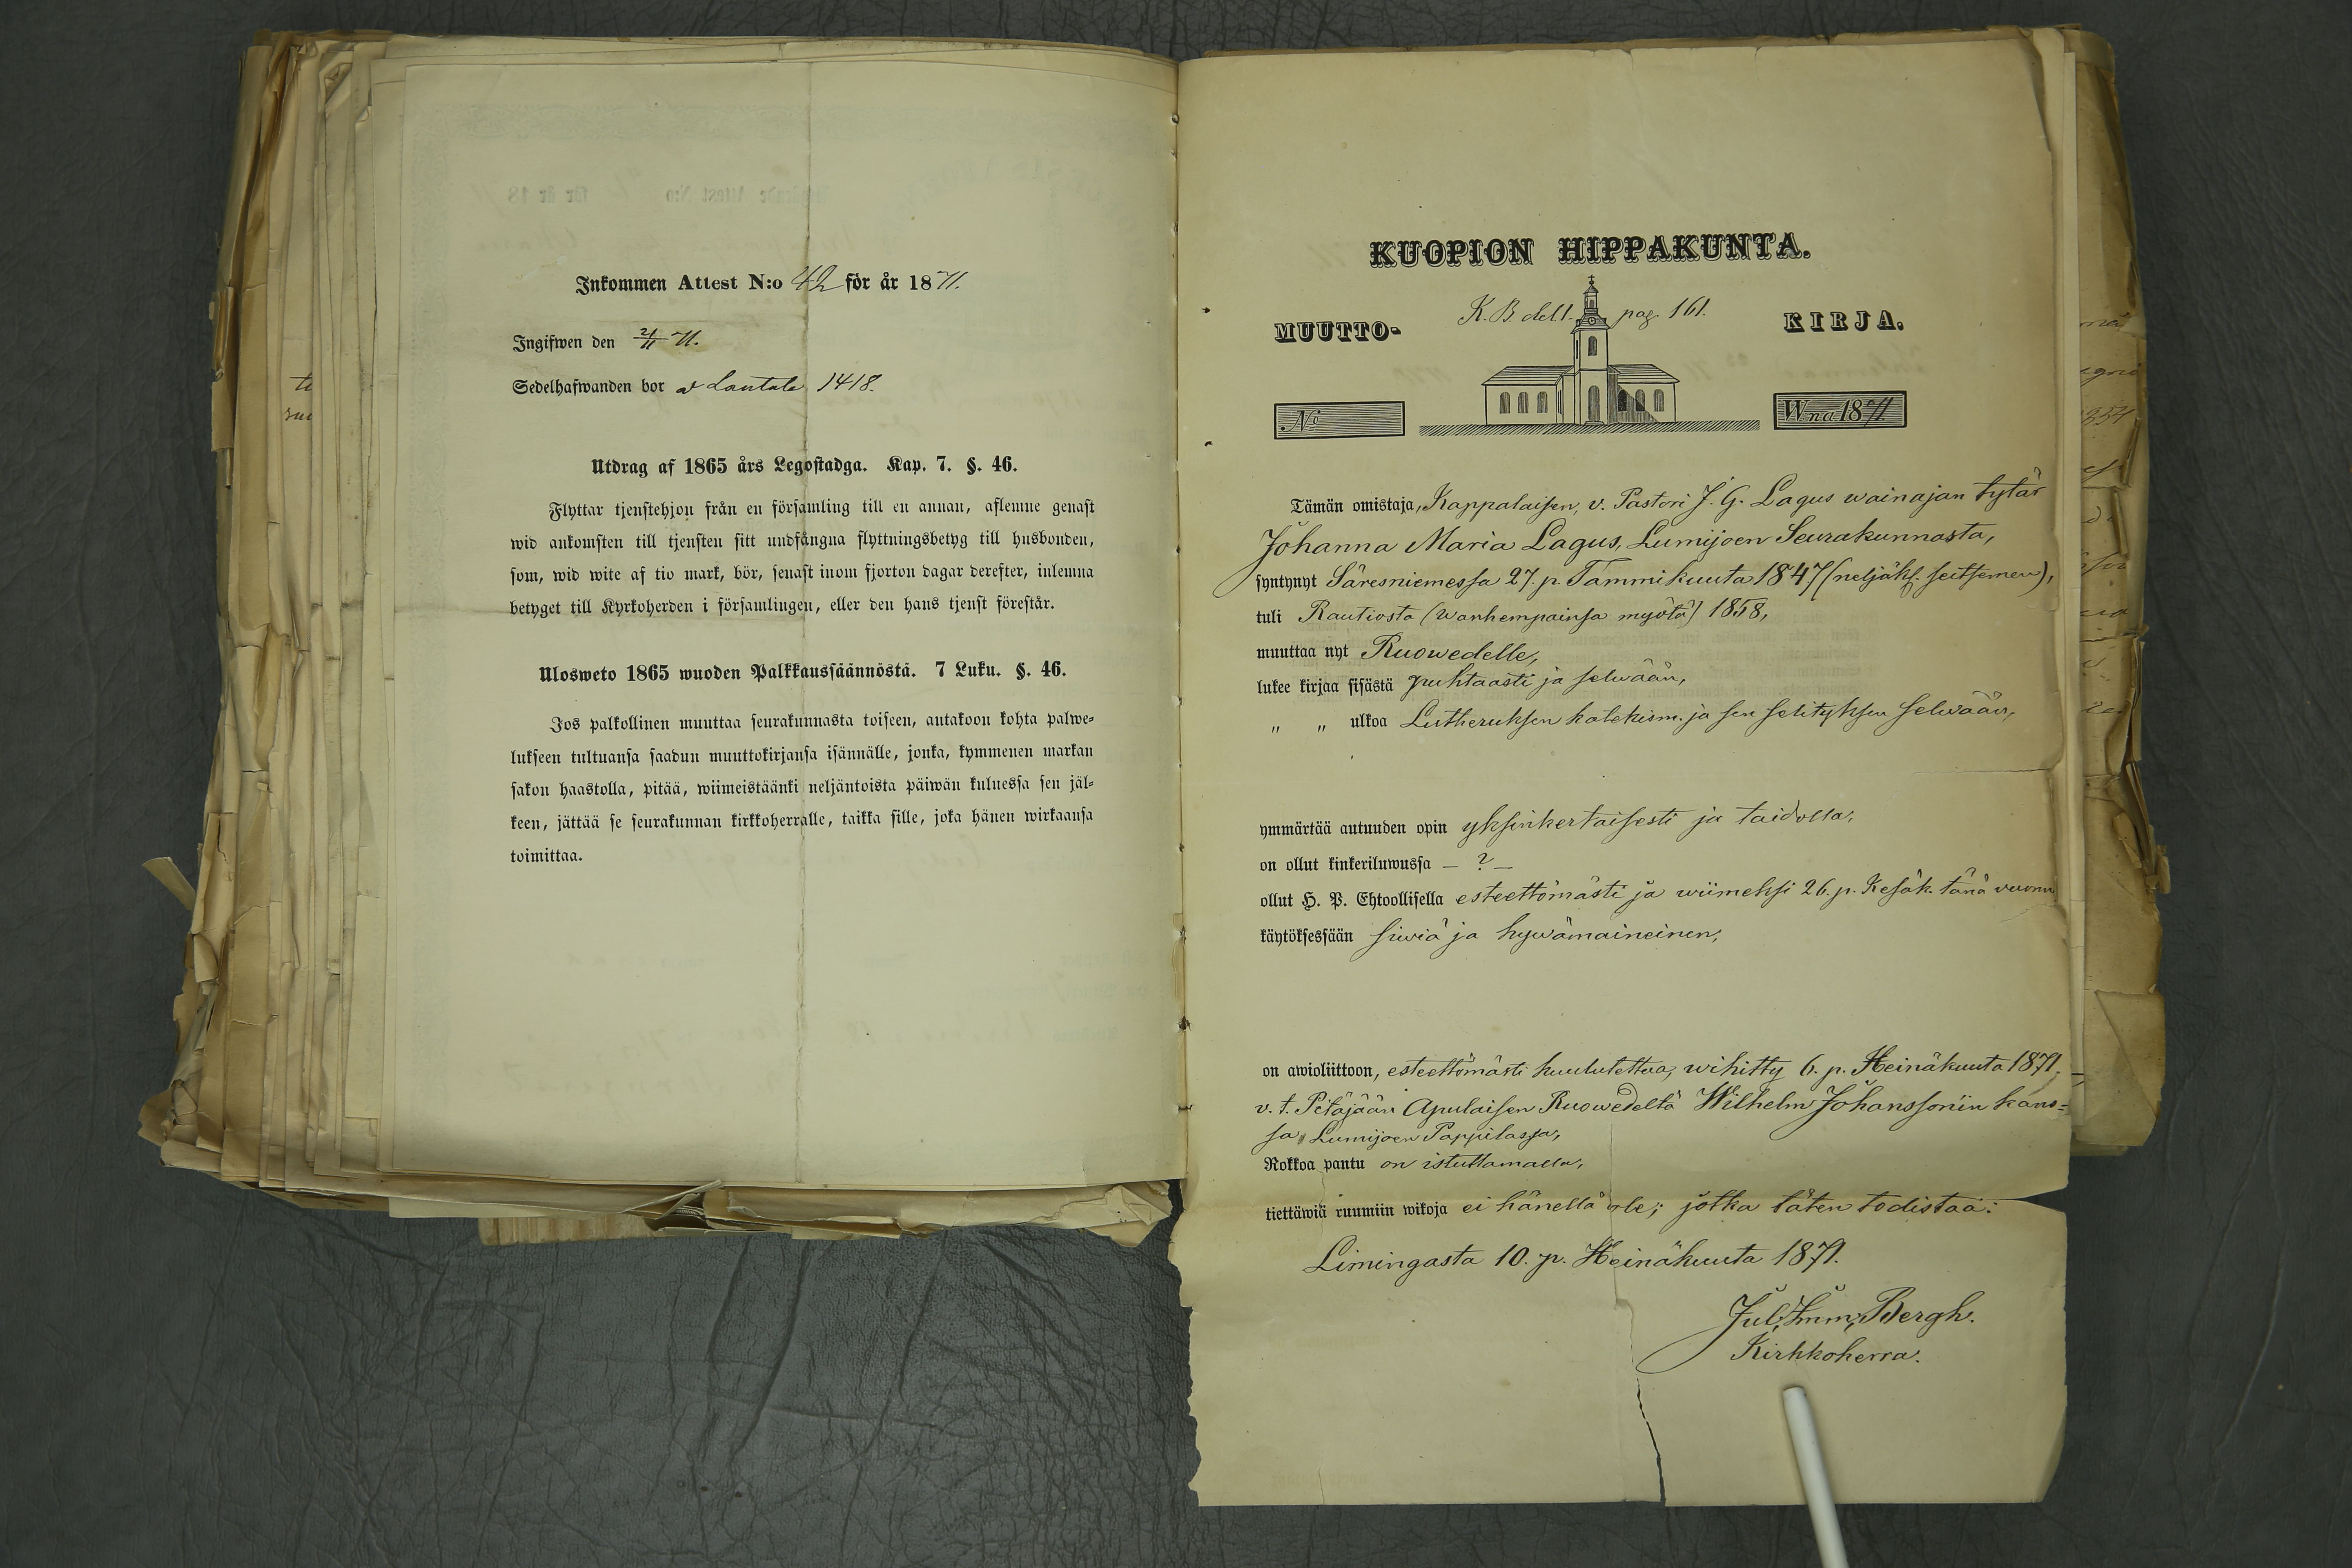 Inkommen Attest N:o 42 för år 1871.
Ingifwen den 2/11 71.
Sedelhafwanden bor a Lautala 1418.
Utdrag af 1865 års Legostadga. Kap. 7. §. 46.
Flyttar tjenstehjon från en församling till en annan, aflemne genast
wid ankomsten till tjensten sitt undfångna flyttningsbetyg till husbonden,
som, wid wite af tio mark, bör, senast inom fjorton dagar derefter, inlemna
betyget till Kyrkoherden i församlingen, eller den hans tjenst förestår.
Ulosweto 1865 wuoden Palkkaussäännöstä. 7 Luku. §. 46.
Jos palkollinen muuttaa seurakunnasta toiseen, antakoon kohta palwe-
lukseen tultuansa saadun muuttokirjansa isännälle, jonka, kymmenen markan
sakon haastolla, pitää, wiimeistäänki neljäntoista päiwän kuluessa sen jäl-
keen, jättää se seurakunnan kirkkoherralle, taikka sille, joka hänen wirkaansa
toimittaa.
KUOPION HIPPAKUNTA.
K. B. del 1. pag. 161.
MUUTTO- KIRJA.
No Wna 1871
Tämän omistaja, Kappalaisen, v. Pastori J. G. Lagus wainajan tytär
Johanna Maria Lagus, Lumijoen Seurakunnasta,
syntynyt Säresniemessa 27. p. Tammikuuta 1847 (neljäks. seitsemen),
tuli Rautiosta (wanhempainsa myötä) 1858,
muuttaa nyt Ruowedelle,
lukee kirjaa sisästä puhtaasti ja selwään,
" " ulkoa Lutheruksen katekism. ja sen selityksen selwään,
ymmärtää autuuden opin yksinkertaisesti ja taidolla,
on ollut kinkeriluwussa — ? —
ollut H. P. Ehtoollisella esteettömästi ja wiimeksi 26. p. Kesäk. tänä vuonna
käytöksessään siwiä ja hywämaineinen,
on awioliittoon, esteettömästi kuulutettua, wihitty 6. p. Heinäkuuta 1871,
v. t. Pitäjään Apulaisen Ruowedeltä Wilhelm Johanssonin kans=
sa, Lumijoen Pappilassa,
Rokkoa pantu on istuttamalla,
tiettäwiä ruumiin wikoja ei hänellä ole; jotka täten todistaa:
Limingasta 10. p. Heinäkuuta 1871.
Jul. Imm. Bergh.
Kirkkoherra.